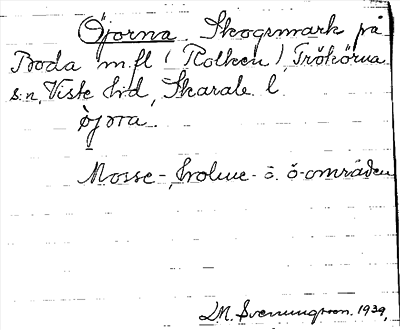 Öjorna. Skogsmark på
Boda m.fl ( Rolken ), Trökörna
s:n, Viste hd, Skarab. l.
öjɷra.
Mosse-, holme- o. ö-områden
L.M. Svenungsson. 1939.